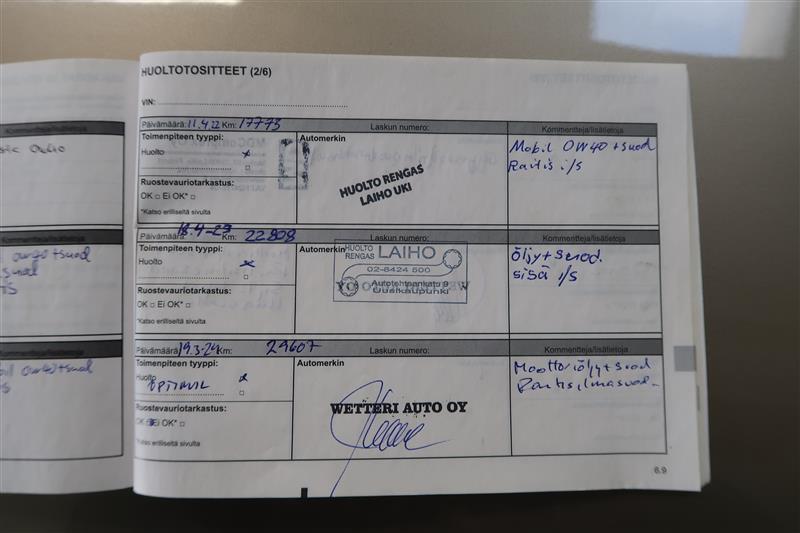 HUOLTOTOSITTEET (2/6)
VIN:
Kommentteja/lisätietoja
Päivämäärä: 11.4.22 Km: 17773 Laskun numero: Kommentteja/lisätietoja
Toimenpiteen tyyppi: Automerkin
Huolto x
Mobil 0W40 + suod
Raitis i/s
HUOLTO RENGAS
LAIHO UKI
Ruostevauriotarkastus:
OK □ Ei OK* □
*Katso erilliseltä sivulta
Kommentteja/lisätietoja
Päivämäärä: 18.4-23 Km: 22808 Laskun numero: Kommentteja/lisätietoja
Toimenpiteen tyyppi: Automerkin
Huolto x
öljy + suod.
sisä i/s
HUOLTO
RENGAS LAIHO
02-8424 500
Autotehtaankatu 9
Uusikaupunki
Ruostevauriotarkastus:
OK □ Ei OK* □
*Katso erilliseltä sivulta
Kommentteja/lisätietoja
Päivämäärä: 19.3-24 Km: 29607 Laskun numero: Kommentteja/lisätietoja
Toimenpiteen tyyppi: Automerkin
Huolto x
Moottoriöljy + suod
WETTERI AUTO OY
Ruostevauriotarkastus:
OK Ei OK* □
*Katso erilliseltä sivulta
6.9